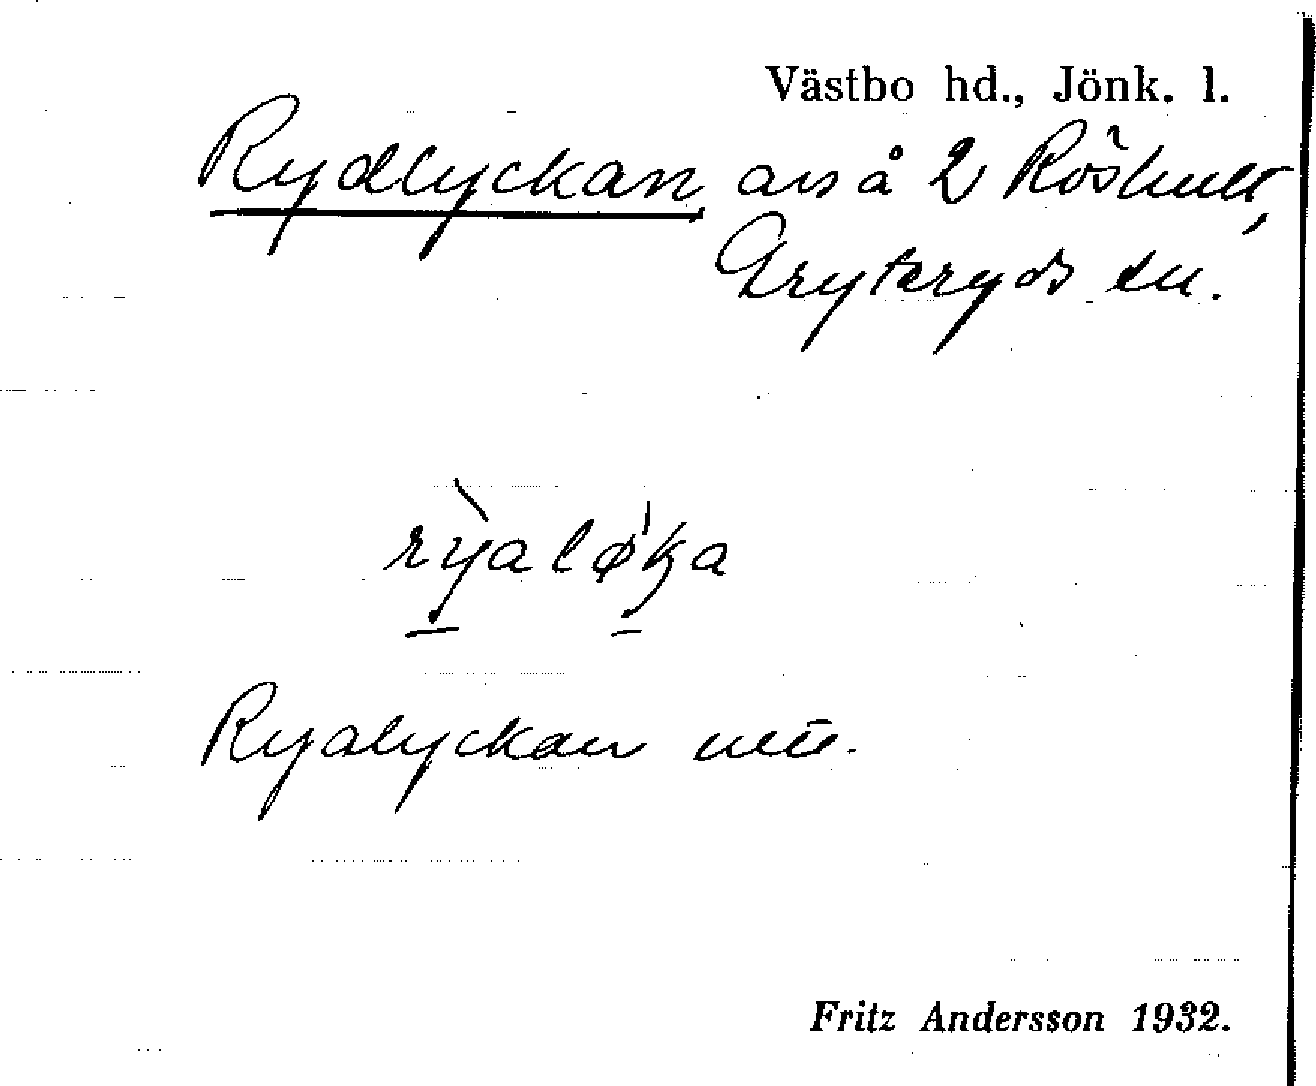 Västbo hd., Jönk. l.
Rydlyckan avs å 2 Röshult,
Gryteryds sn.
rỳalø̀ka
Ryalyckan
Fritz Andersson 1932.